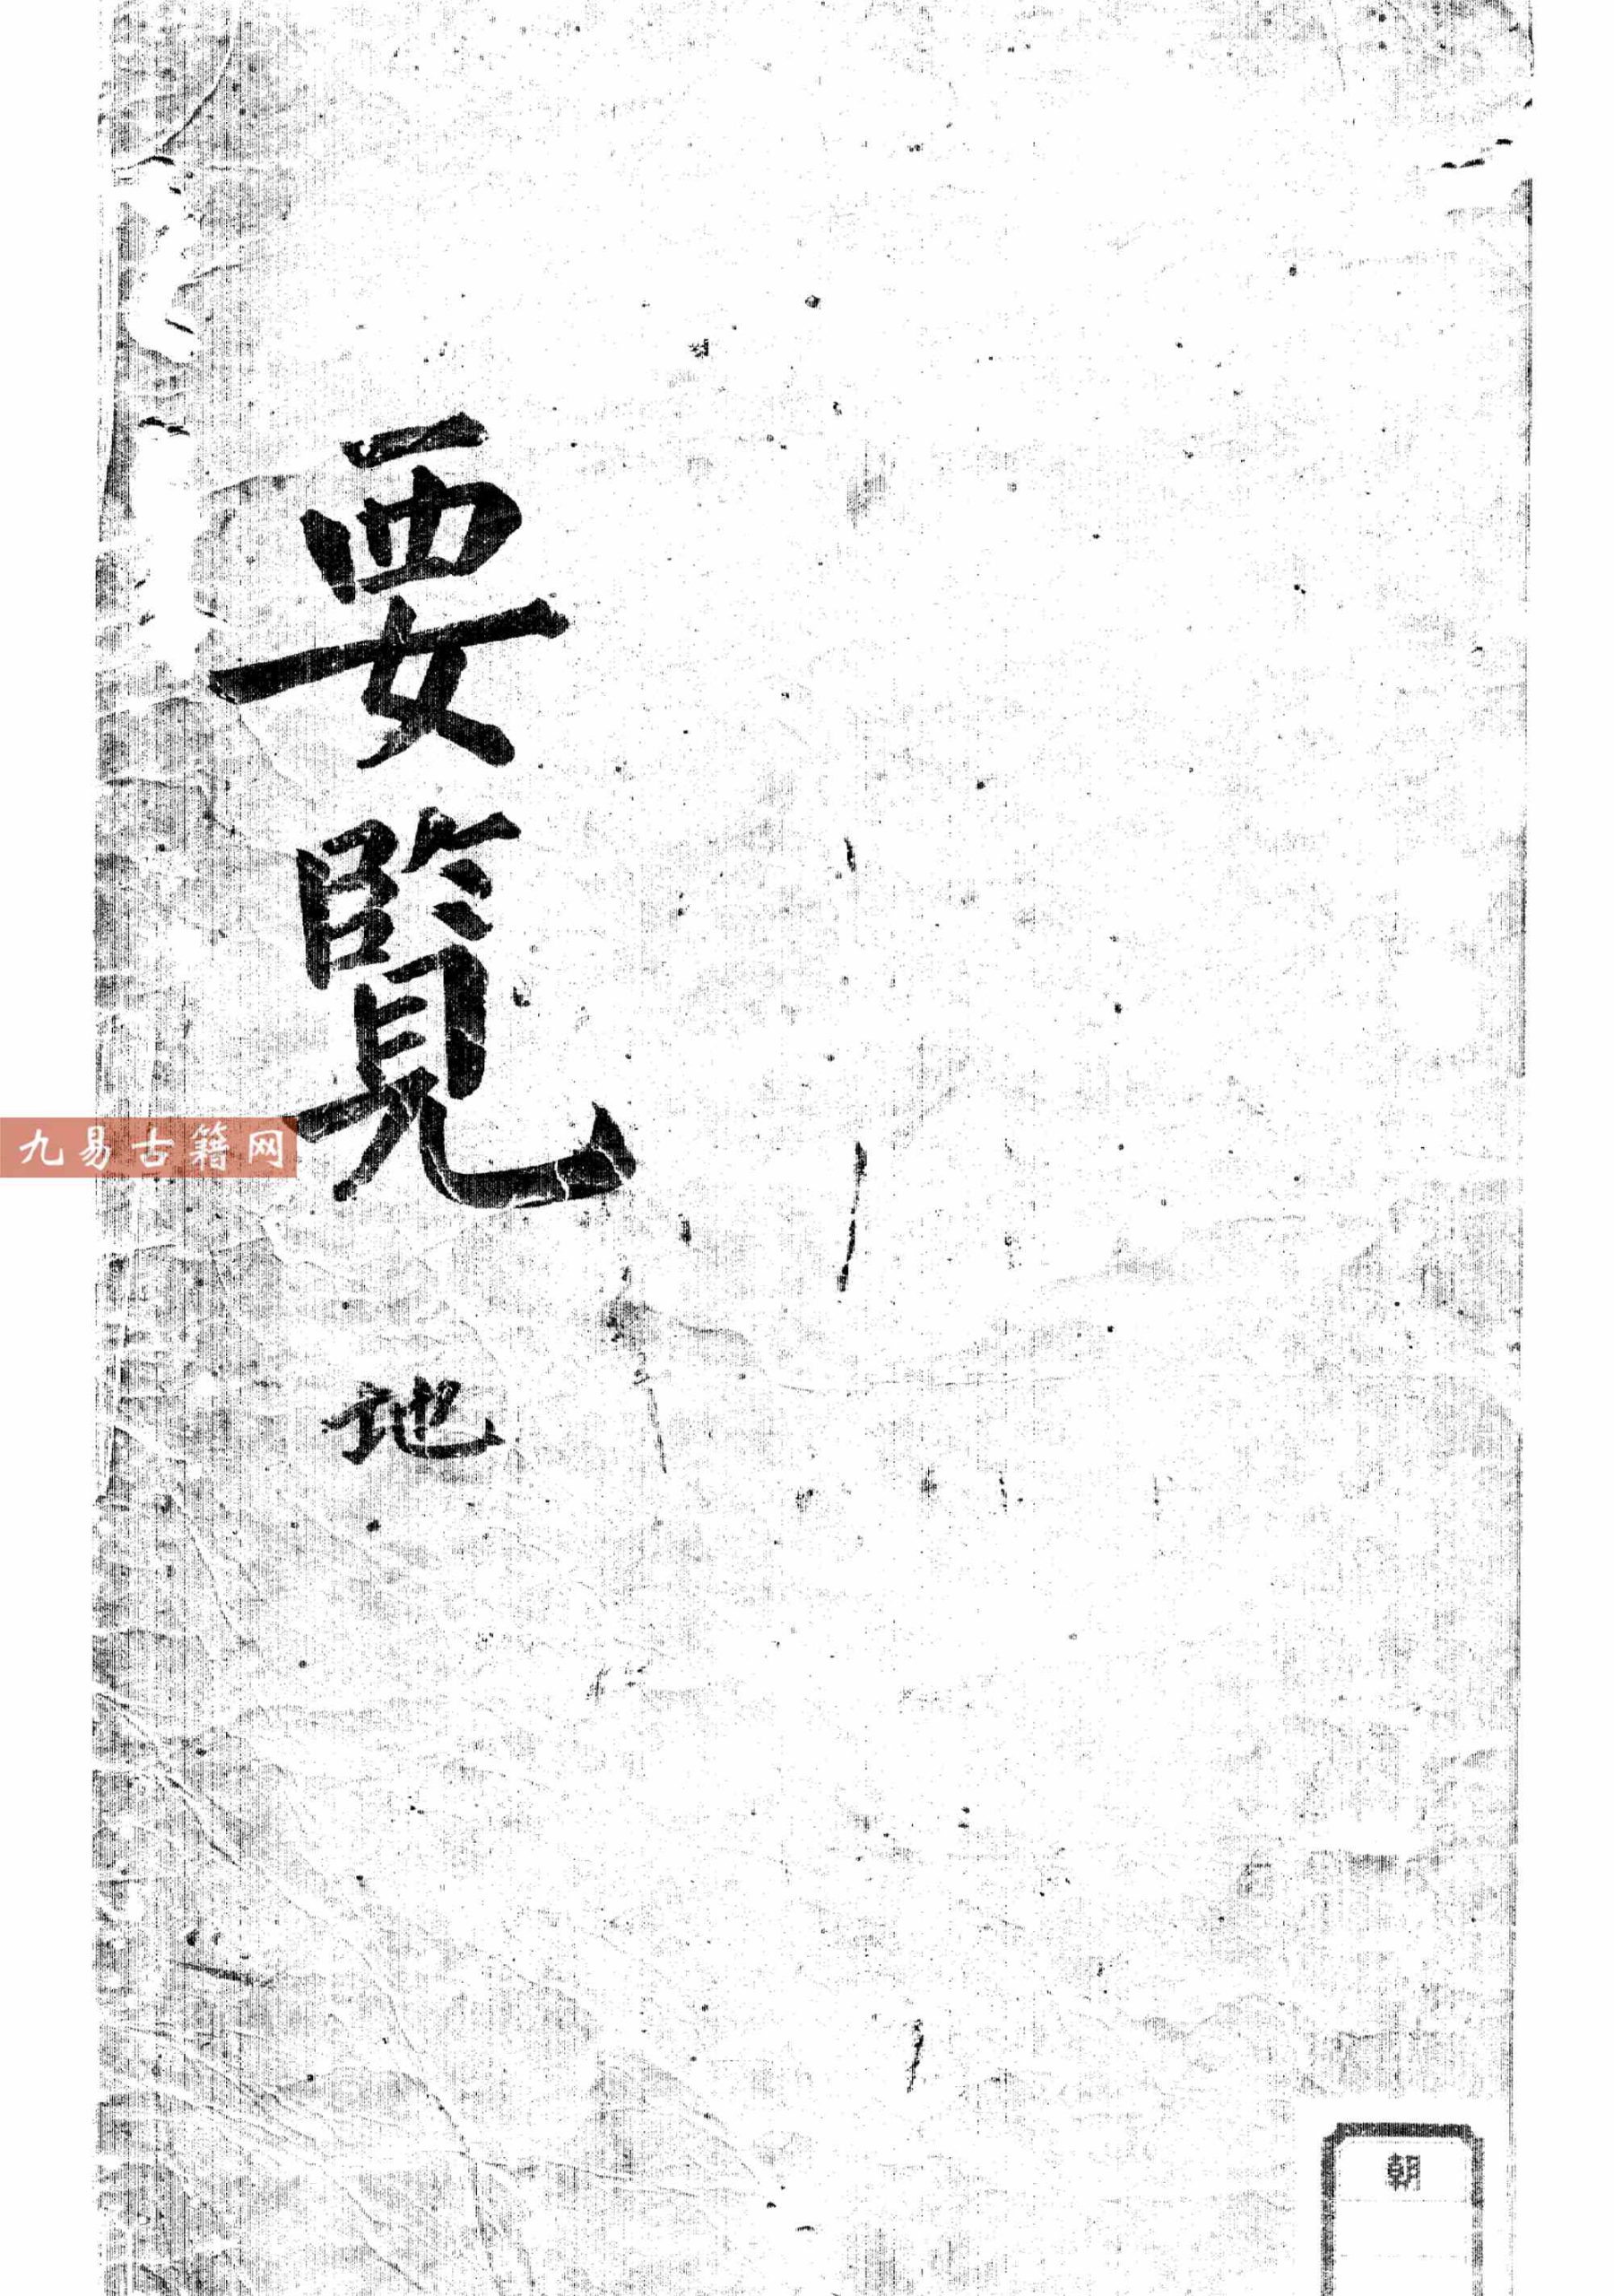 要覽
地
九易古籍网
朝